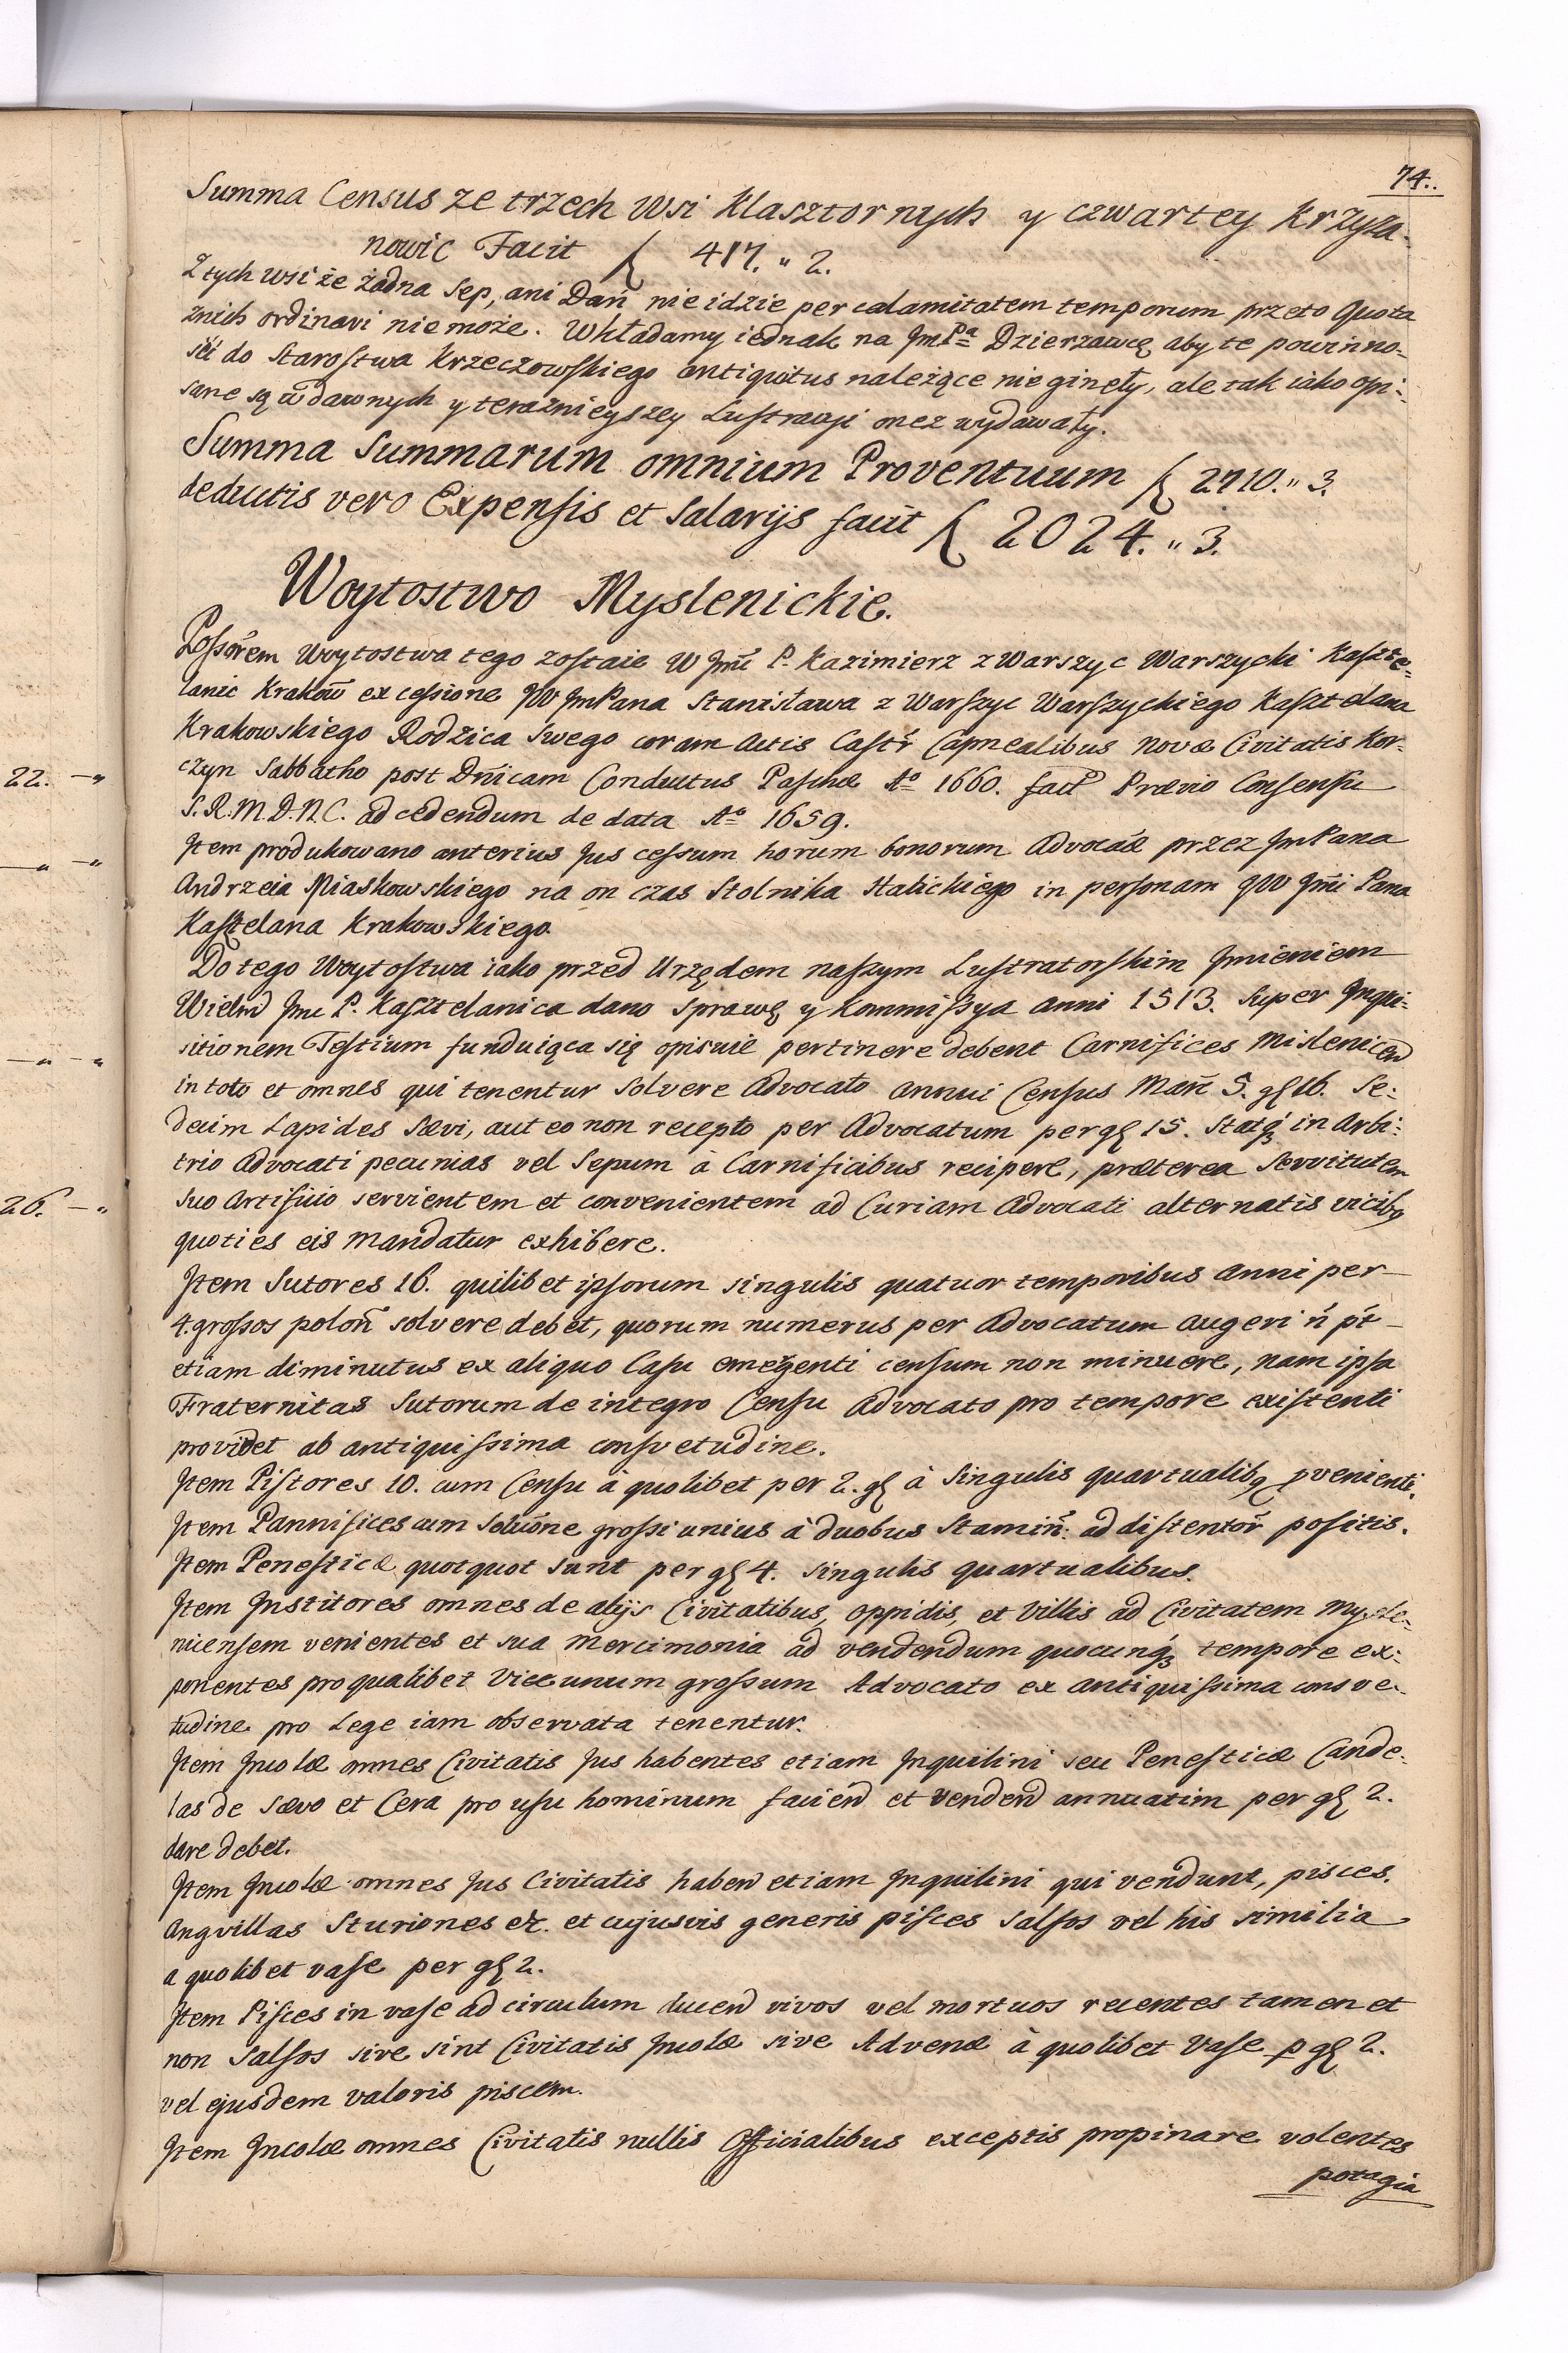 74..
Summa Census ze trzech Wsi Klasztornych y czwartey Krzyża-
nowic Facit ƒ 417. " 2.
Z tych wsi że żadna Sep, ani Dań nie idzie per calamitatem temporum przeto Quota
znich ordinari nie może. Wkładamy iednak na JmPa Dzierzawcę aby te powinno-
sci do Starostwa Krzeczowskiego antiquitus należące nie gineły, ale tak iako opi-
sane są w dawnych y teraźnieyszey Lustracji onez wydawały.
Summa Summarum omnium Proventuum ƒ 2710. " 3.
deductis vero Expensis et Salarijs facit ƒ 2024. " 3.
Woytostwo Myslenickie.
Possorem Woytostwa tego zostaie W Jmć P. Kazimierz z Warszyc Warszycki Kaszte-
lanic Krakow ex cessione JW JmPana Stanisława z Warszyc Warszyckiego Kasztelana
Krakowskiego Rodzica Swego coram Actis Castr Capnealibus Novæ Civitatis Kor-
czyn Sabbatho post Dnicam Conductus Paschæ Ao 1660. fact Prævio Consensu
S.R.M.D.N.C. ad cedendum de data Ao 1659.
Item produkowano anterius Jus cessum horum bonorum Advocaæ przez JmPana
Andrzeia Piaskowskiego na on czas Stolnika Halickiego in personam JW Jmci Pana
Kasztelana Krakowskiego.
Do tego Woytostwa iako przed Urzędem naszym Lustratorskim Jmieniem
Wielm Jmc P. Kasztelanica dano sprawę y Kommissya anni 1513. Super Inqui-
sitionem Testium funduiąca się opisuie pertinere debent Carnifices Mislenicen
in toto et omnes qui tenentur solvere Advocato annui Census Marc 5. gſ 16. Se-
decim Lapides Sævi, aut eo non recepto per Advocatum per gſ 15. Statq in Arbi-
trio Advocati pecunias vel Sepum à Carnificibus recipere, præterea servitutem
suo Artificio servientem et convenientem ad Curiam Advocati alternatis vicibq
quoties eis mandatur exhibere.
Item Sutores 16. quilibet ipsorum singulis quatuor temporibus anni per
4. grossos polon solvere debet, quorum numerus per Advocatum augeri ń pt
etiam diminutus ex aliquo Casu emergenti censum non minuere, nam ipsa
Fraternitas Sutorum de integro Censu Advocato pro tempore existenti
providet ab antiquissima consvetudine.
Item Pistores 10. cum Censu à quolibet per 2. gſ à Singulis quartualibq pvenienti.
Item Pannifices cum Soluone grossi unius à duobus Stamin: ad distentor positis.
Item Penesticæ quotquot sunt per gſ 4. singulis quartualibus.
Item Institores omnes de alijs Civitatibus, oppidis, et Villis ad Civitatem Mysle-
nicensem venientes et sua mercimonia ad vendendum quocunq tempore ex-
ponentes pro qualibet Vice unum grossum Advocato ex antiquissima consve-
tudine pro Lege iam observata tenentur.
Item Incolæ omnes Civitatis Jus habentes etiam Inquilini seu Penesticæ Cande-
las de Sævo et Cera pro usu hominum faciend et vendend annuatim per gſ 2.
dare debet.
Item Incolæ omnes Jus Civitatis haben etiam Inquilini qui vendunt, pisces.
Angvillas Sturiones etc. et cujusvis generis pisces salsos vel his similia
a quolibet vase per gſ 2.
Item Pisces in vase ad circulum ducen vivos vel mortuos recentes tamen et
non Salsos sive sint Civitatis Incolæ sive Advenæ à quolibet Vase p gſ 2.
vel ejusdem valoris piscem.
Item Incolæ omnes Civitatis nullis Officialibus exceptis propinare volentes
potagia
22. — "
— " — "
— " — "
26. — "